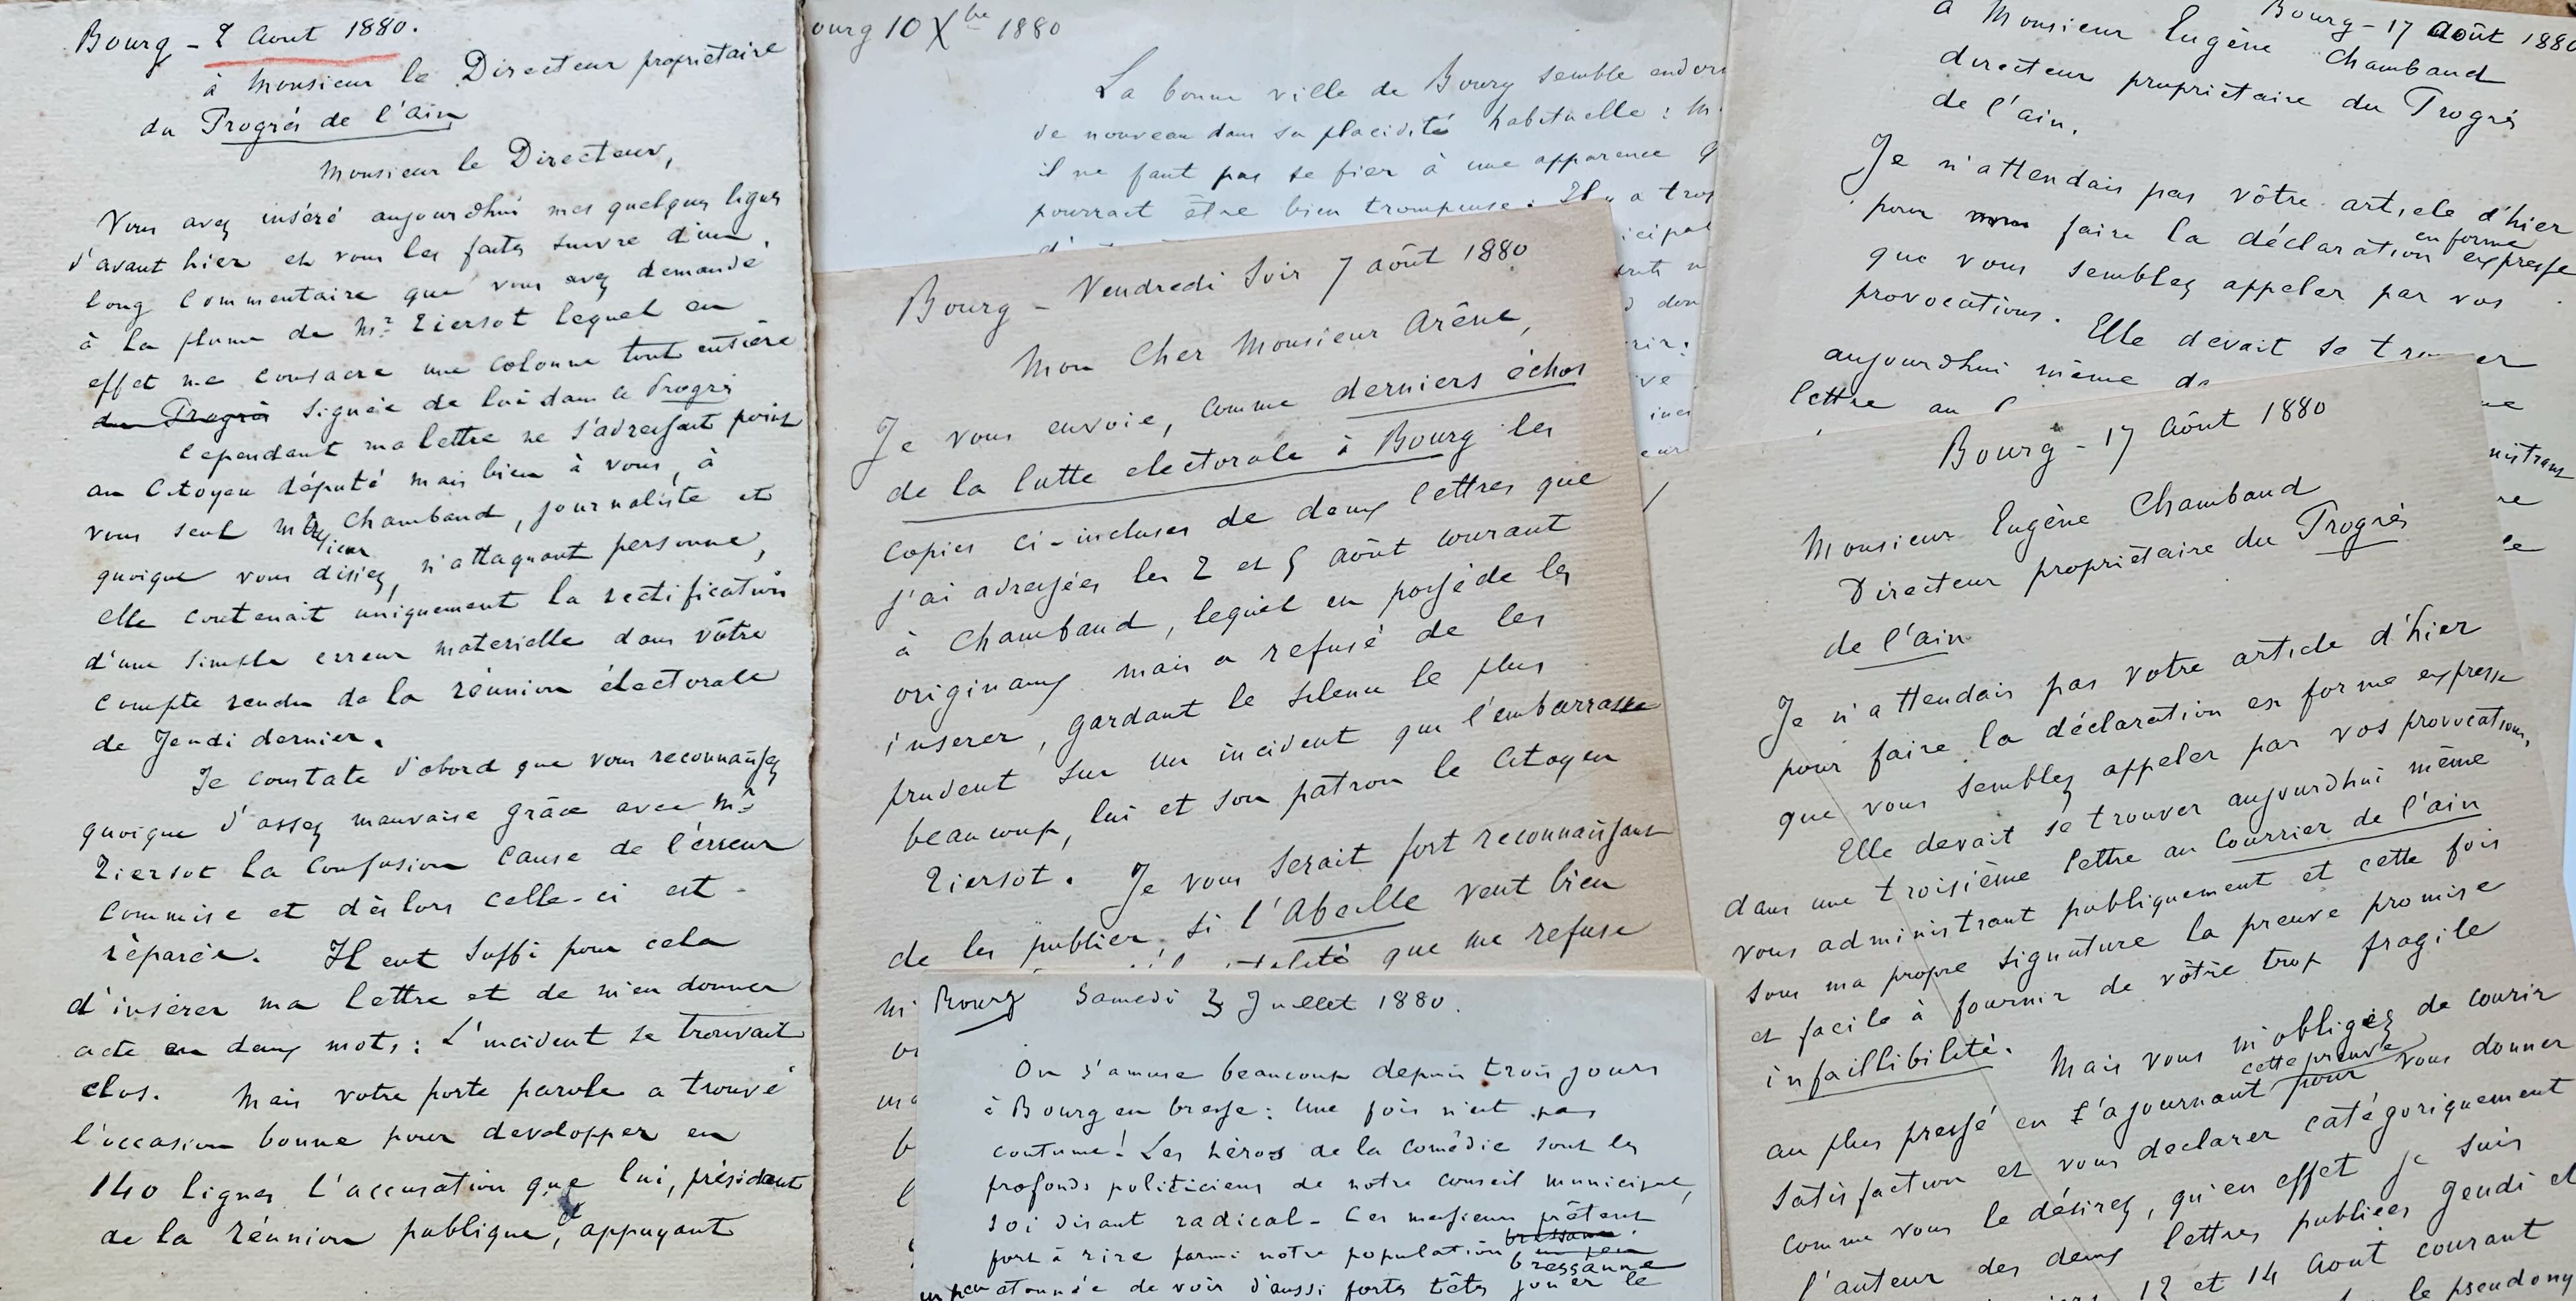 Bourg - 2 Aout 1880.
à Monsieur le Directeur propriétaire
du Progrés de l'ain
Monsieur le Directeur,
Vous avez inséré aujourdhui mes quelques lignes
d'avant hier et vous les faites suivre d'un
long commentaire que vous avez demandé
à la plume de Mr Tiersot lequel en
effet me consacre une colonne tout entière
du Progrès signée de lui dans le Progrès
Cependant ma lettre ne s'adressant point
au Citoyen député mais bien à vous, à
vous seul Chambaud, journaliste et
quoique vous disiez, n'attaquant personne,
elle contenait uniquement la rectification
d'une simple erreur materielle dans vôtre
compte rendu de la réunion électorale
de Jeudi dernier.
Je constate d'abord que vous reconnaissez
quoique d'assez mauvaise grâce avec Mr
Tiersot la confusion cause de l'erreur
commise et dès lors celle-ci est
réparée. Il eut suffi pour cela
d'insérer ma lettre et de m'en donner
acte en deux mots: L'incident se trouvait
clos. Mais votre porte parole a trouvé
l'occasion bonne pour developper en
140 lignes l'accusation que lui, président
de la réunion publique, appuyant
ourg 10 Xbre 1880
La bonne ville de Bourg semble endor
de nouveau dans sa placidité habituelle: M
il ne faut pas se fier à une apparence q
pourrait être bien trompeuse. Il y a trop
icipal
Bourg - Vendredi Soir 7 août 1880
Mon Cher Monsieur Arène,
Je vous envoie, comme derniers échos
de la lutte electorale à Bourg les
copies ci-incluses de deux lettres que
j'ai adressées les 2 et 5 août courant
à Chambaud, lequel en possède les
originaux mais a refusé de les
inserer, gardant le silence le plus
prudent sur un incident qui l'embarrasse
beaucoup, lui et son patron le Citoyen
Tiersot. Je vous serait fort reconnaissant
de les publier, si l'Abeille veut bien
que me refuse
Bourg Samedi 3 Juillet 1880.
On s'amuse beaucoup depuis trois jours
à Bourg en bresse: Une fois n'est pas
coutume! Les héros de la comédie sont les
profonds politiciens de notre conseil municipal,
soi disant radical - Ces messieurs prêtent
fort à rire parmi notre population bressanne
un peu etonnée de voir d'aussi fortes têtes jouer le
Bourg - 17 Août 1880
à Monsieur Eugène Chambaud
directeur propriétaire du Progrès
de l'ain.
Je n'attendais pas vôtre article d'hier
pour faire la déclaration en forme expresse
que vous semblez appeler par vos
provocations. Elle devait se trouver
aujourdhui même
lettre au
Bourg - 17 Août 1880
Monsieur Eugène Chambaud
Directeur propriétaire du Progrès
de l'ain
Je n'attendais pas votre article d'hier
pour faire la déclaration en forme expresse
que vous semblez appeler par vos provocations,
Elle devait se trouver aujourdhui même
dans une troisième lettre au Courrier de l'ain
vous administrant publiquement et cette fois
sous ma propre signature la preuve promise
et facile à fournir de vôtre trop fragile
infaillibilité. Mais vous m'obligez de courir
au plus pressé en l'ajournant cette preuve pour vous donner
satisfaction et vous declarer catégoriquement
comme vous le désirez, qu'en effet je suis
l'auteur des deux lettres publiées Jeudi et
12 et 14 Aout courant
le pseudony